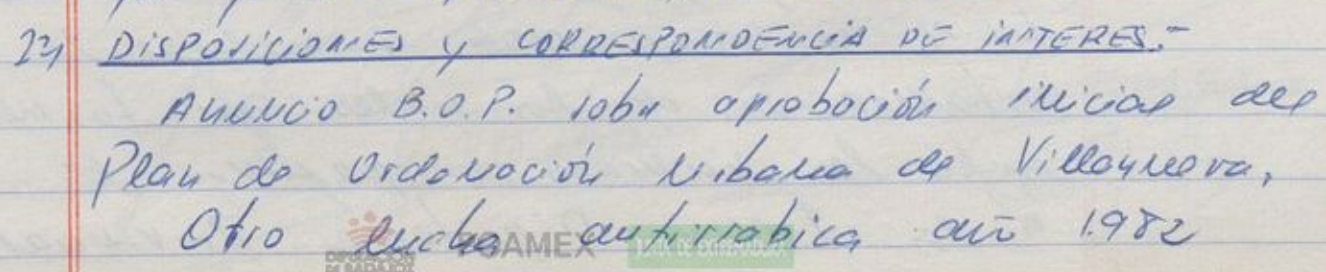 2º) DISPOSICIONES y CORRESPONDENCIA DE INTERES.-
Anuncio B.O.P. sobre aprobación inicial del
Plan de Ordenación Urbana de Villanueva,
Otro lucha antirrabica año 1.982
DIPUTACIÓN DE BADAJOZ
JUNTA DE EXTREMADURA